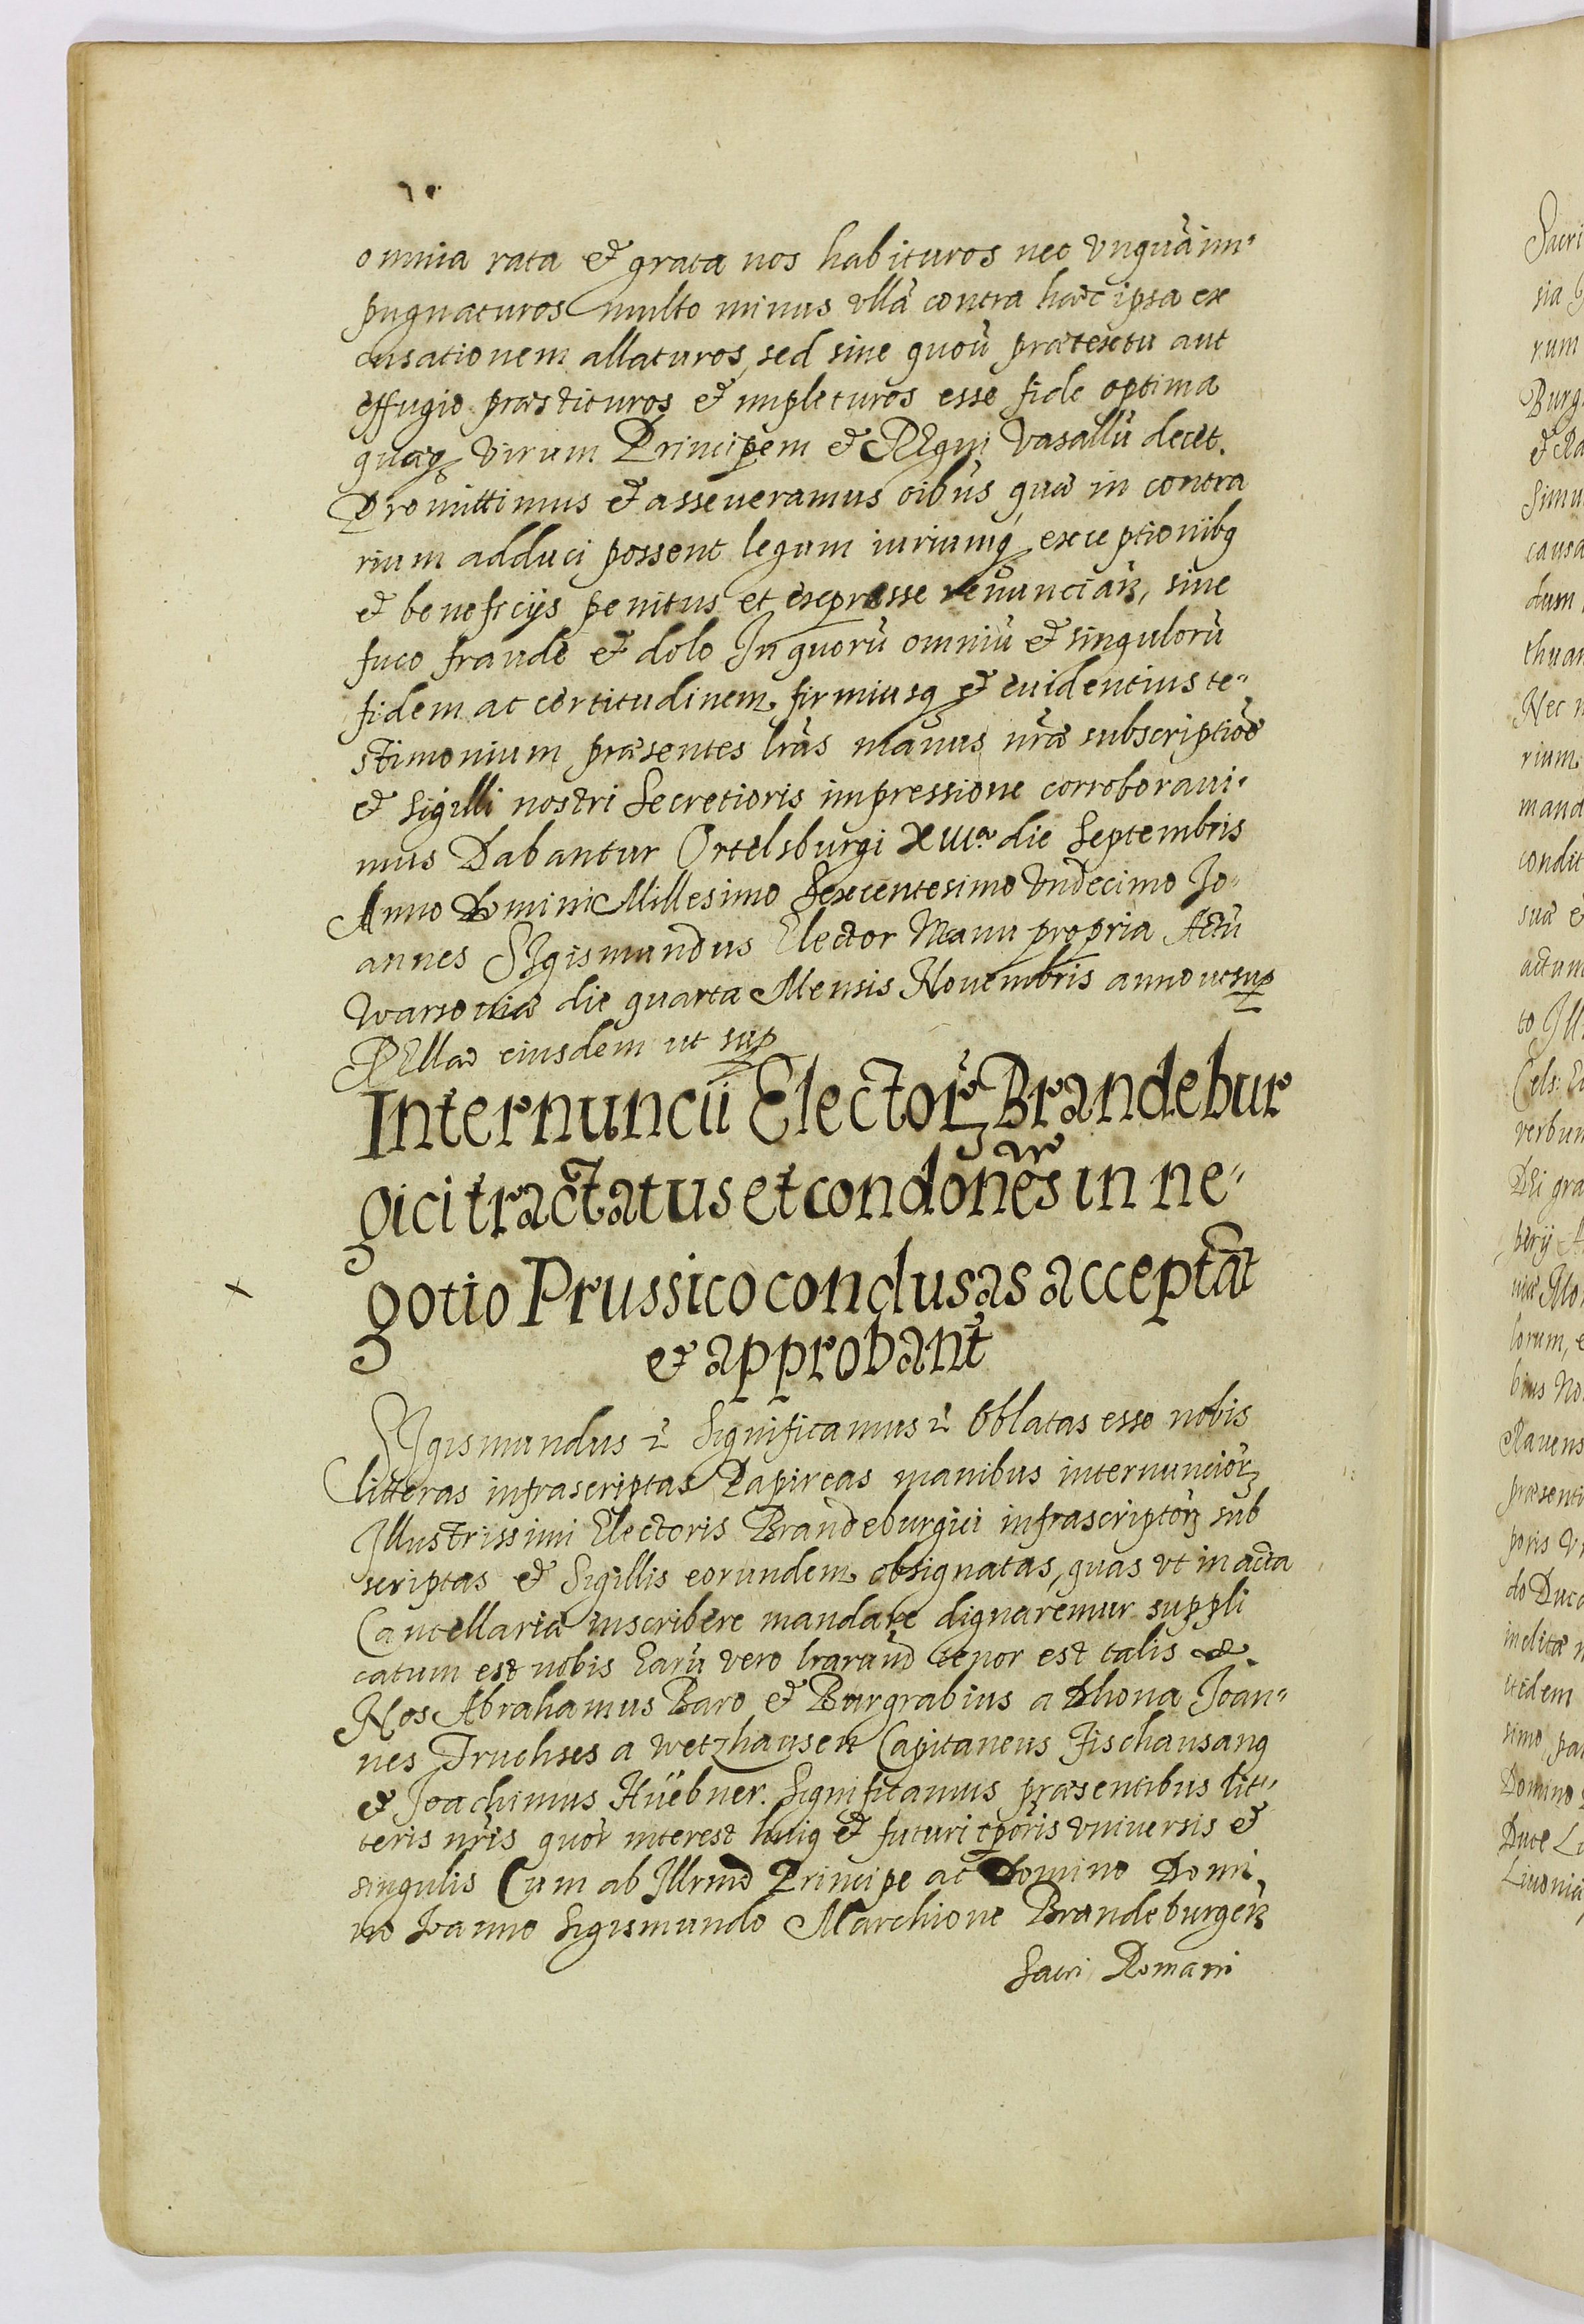 omnia rata et grata nos habituros nec vnquã im-
pugnaturos multo minus vllã contra hæc ipsa ex
cusationem allaturos, sed sine quoũ prætextu aut
effugio præstituros et impleturos esse fide optima
quaq virum Principem et REgni Vasallũ decet.
Promittimus et asseueramus oĩbus quæ in contra
rium adduci possent legum iuriumq exceptionibq
et beneficijs penitus et expresse renunciañ, sine
fuco fraude et dolo In quorũ omniũ et singulorũ
fidem ac certitudinem, firmiusq et euidentius te-
stimonium præsentes lr̃as manus nr̃æ subscriptiõe
et Sigilli nostri Secretioris impressione corroboraui-
mus Dabantur Ortelsburgi XIIIa die Septembris
Anno Domini Millesimo Sexcentesimo Vndecimo Jo-
annes SIgismundus Elector Manu propria Actũ
Warsouiæ die quarta Mensis Nouembris anno ut sup
RElla eiusdem ut sup
Internuncii Elector Brandebur
gici tractatus et condones in ne-
gotio Prussico conclusas acceptãt
et approbant
SIgismundus Significamus Oblatas esse nobis
litteras infrascriptas Papireas manibus internuncior
Illustrissimi Electoris Brandeburgici infrascriptor sub
scriptas et Sigillis eorundem obsignatas, quas vt in acta
Cancellariæ inscribere mandare dignaremur suppli
catum est nobis Earũ vero lrarund tenor est talis
Nos Abrahamus Baro et Burgrabius a Dhona Joan-
nes Truchses a Wetzhausen Capitaneus Fischausang
et Joachimus Hüebner. Significamus præsentibus lit-
teris nr̃is quor interest huiq et futuri tp̃oris vniuersis et
singulis Cum ab Illrmo Principe ac Domino Domi
no Joanne Sigismundo Marchione Brandeburgeñ
Sacri Romani
Sacri
rum
Burg
et Ra
Simu
causa
dum
thuan
Nec
rium
mand
condit
suæ
actum
to Ill
verbum
Dei gra
perij
lorum,
Rauens
præsenti
poris
do Duca
inclitæ
itidem
simo
Domino
Duce
Liuoniæ